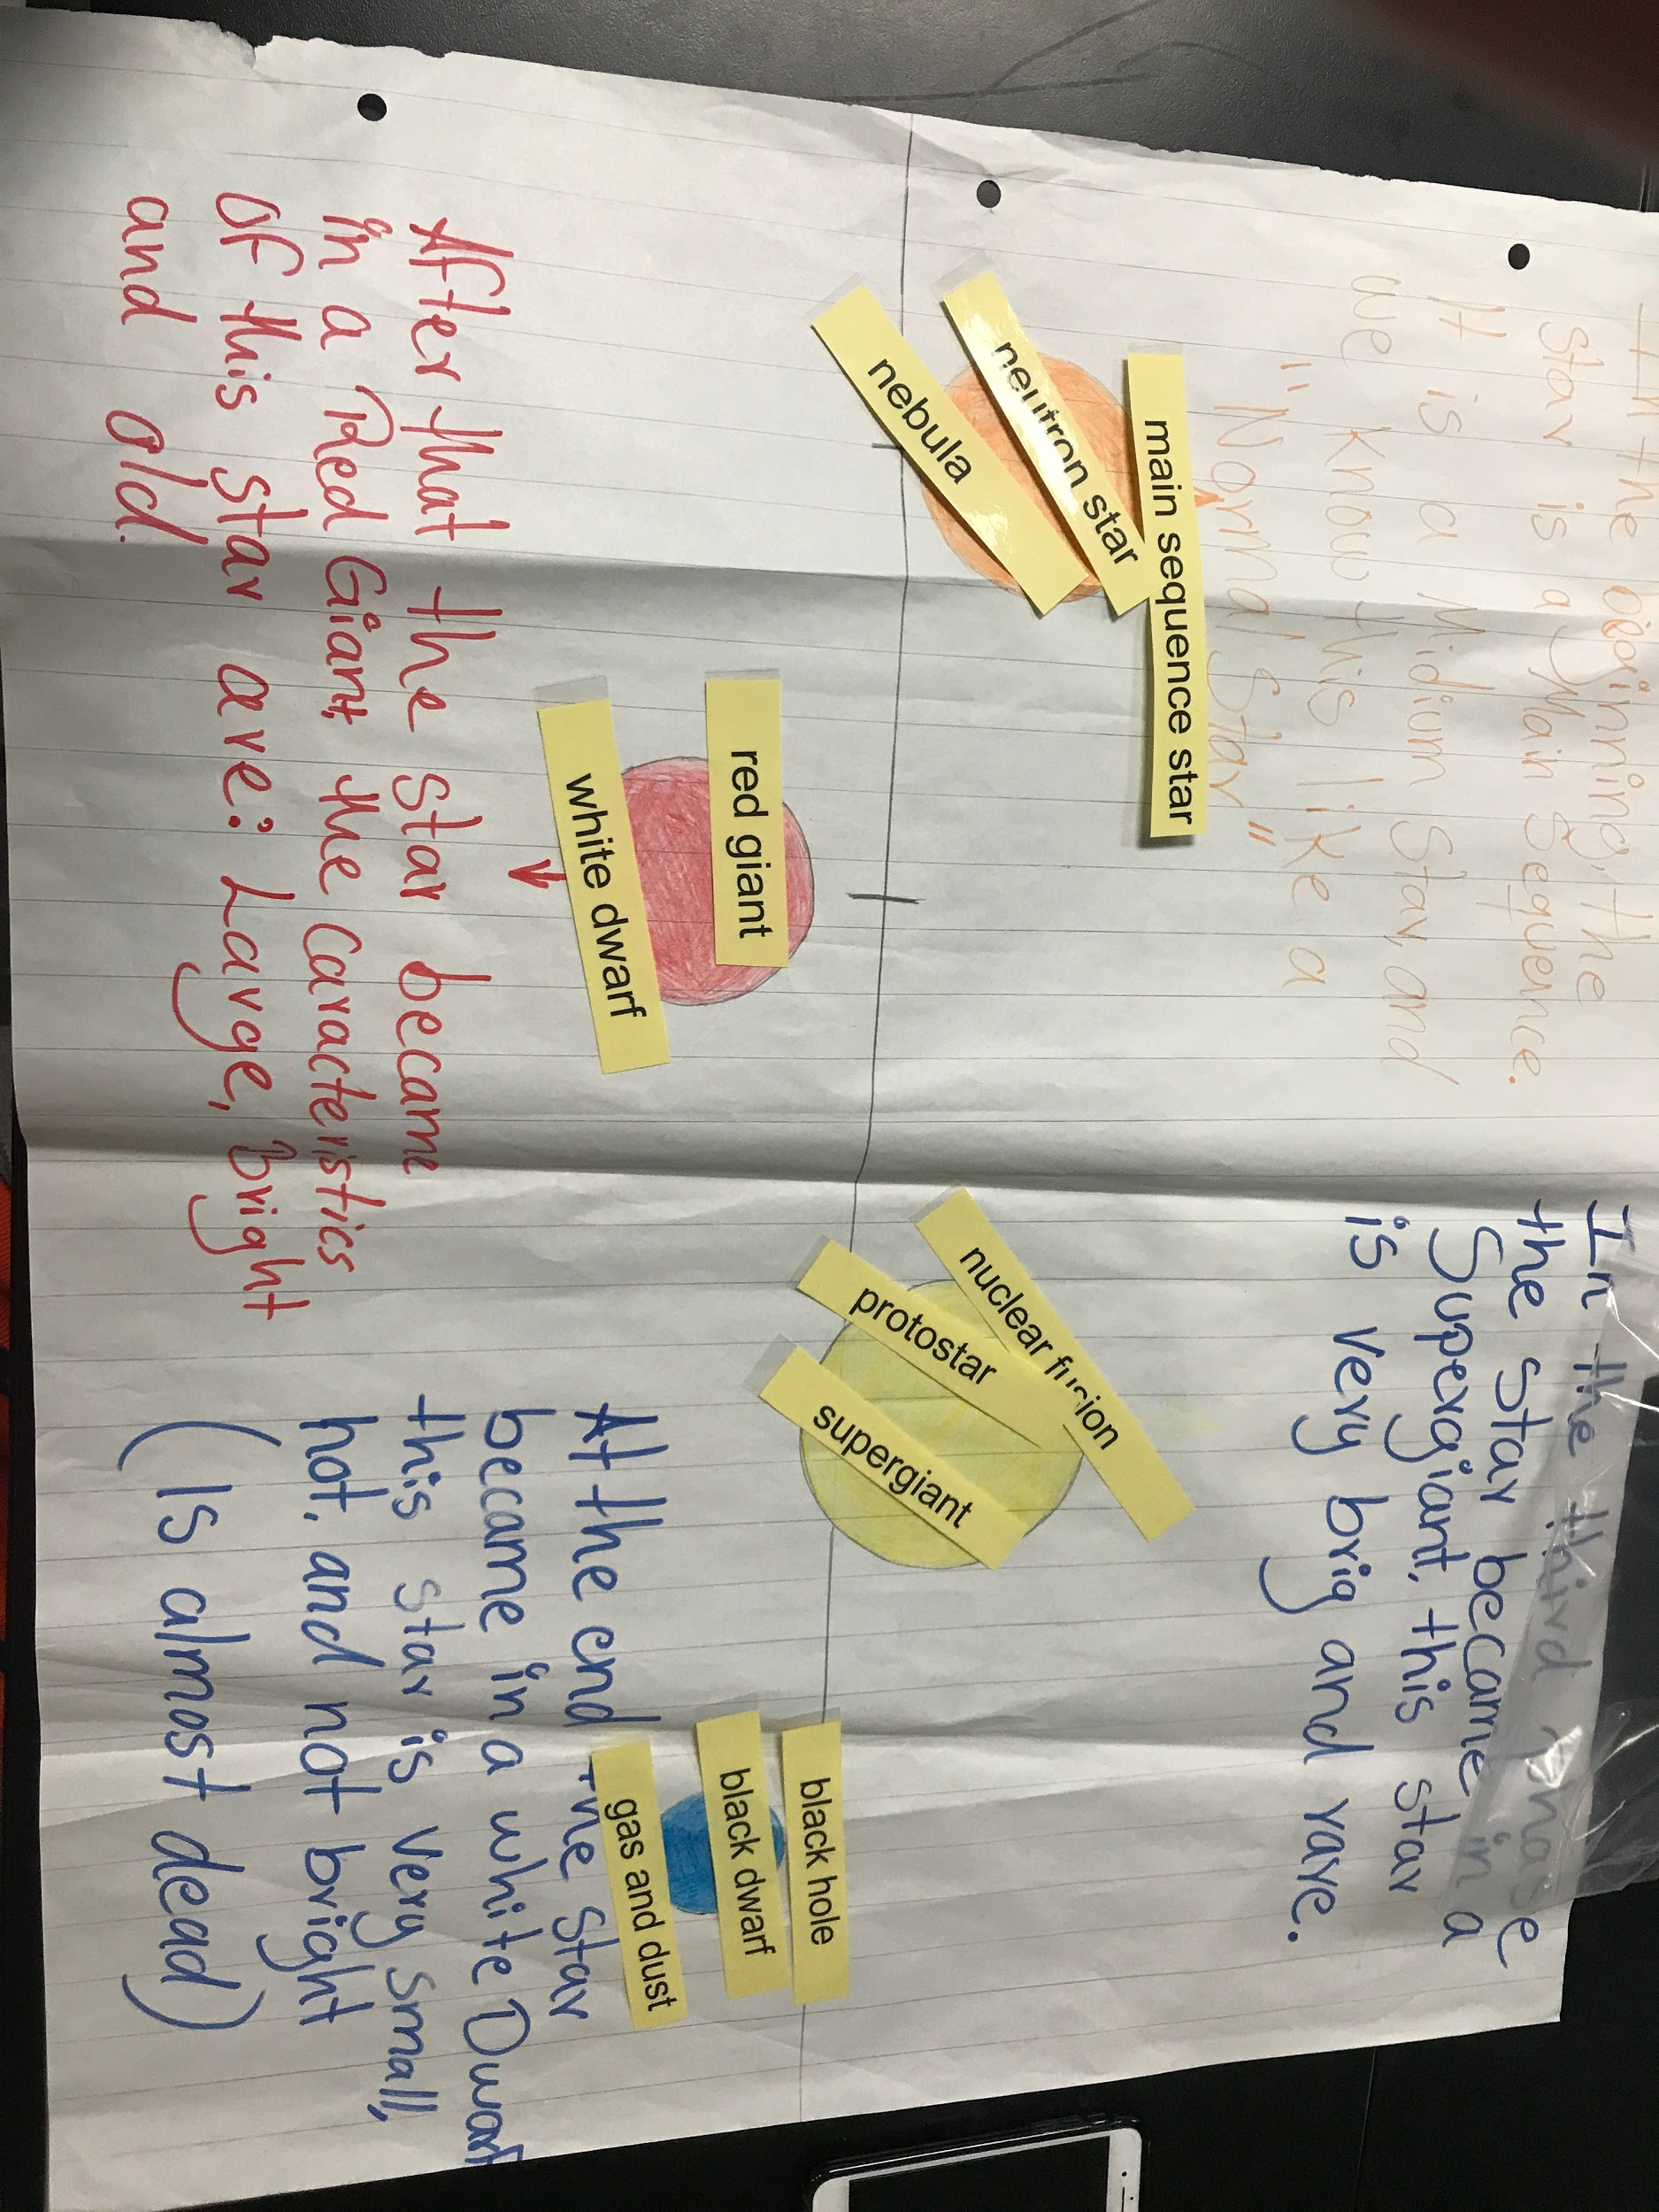 In the beginning, the
star is a Main Sequence.
It is a Midium Star, and
we know this like a
"Normal Star"
main sequence star
neutron star
nebula
red giant
white dwarf
After that the star became
in a Red Giant, the caracteristics
of this star are: Large, bright
and old.
In the third phase
the star became in a
Supergiant, this star
is very brig and rare.
nuclear fusion
protostar
supergiant
black hole
black dwarf
gas and dust
At the end the star
became in a white Dwarf
this star is very small,
hot, and not bright
(Is almost dead)